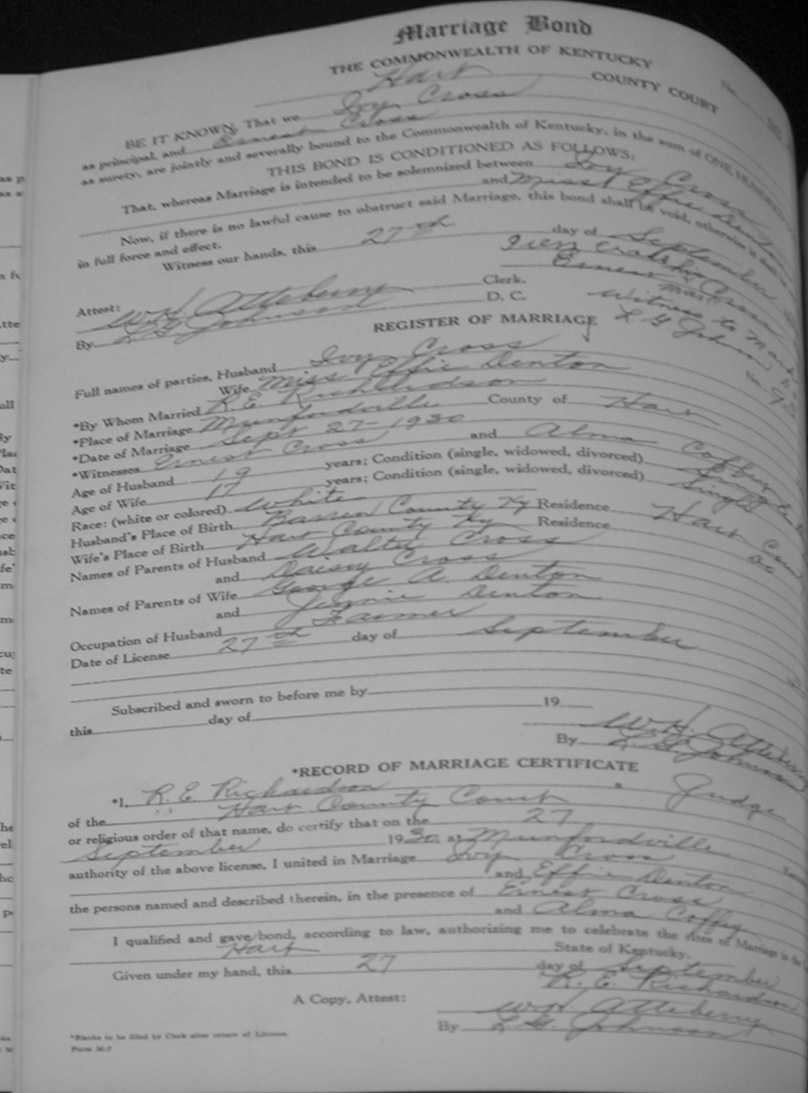 Marriage Bond
THE COMMONWEALTH OF KENTUCKY
Hart COUNTY COURT
BE IT KNOWN: That we Ivy Cross
as principal, and Ernest Cross
as surety, are jointly and severally bound to the Commonwealth of Kentucky, in the sum of ONE HUNDRED
THIS BOND IS CONDITIONED AS FOLLOWS:
That, whereas Marriage is intended to be solemnized between Ivy Cross
and Miss Effie Denton
Now, if there is no lawful cause to obstruct said Marriage, this bond shall be void, otherwise it shall
in full force and effect.
Witness our hands, this 27th day of September
Ivy Cross
Ernest Cross
mark
Attest: W.H. Atteberry Clerk.
By L G Johnson D. C.
Witness to Mark
L G Johnson
REGISTER OF MARRIAGE No.
Full names of parties, Husband Ivy Cross
Wife Miss Effie Denton
*By Whom Married R. E. Richardson
*Place of Marriage Munfordville County of Hart
*Date of Marriage Sept 27-1930
*Witnesses Ernest Cross and Alma Coffey
Age of Husband 19 years; Condition (single, widowed, divorced) Single
Age of Wife 17 years; Condition (single, widowed, divorced) Single
Race: (white or colored) White
Husband's Place of Birth Barren County Ky Residence Hart
Wife's Place of Birth Hart County Ky Residence Do
Names of Parents of Husband Walter Cross
and Daisey Cross
Names of Parents of Wife George A. Denton
and Jennie Denton
Occupation of Husband Farmer
Date of License 27th day of September
Subscribed and sworn to before me by
this day of 19
W.H. Atteberry
By L. G. Johnson
*RECORD OF MARRIAGE CERTIFICATE
*I, R. E. Richardson a Judge
of the Hart County Court
or religious order of that name, do certify that on the 27
September 1930, at Munfordville
authority of the above license, I united in Marriage Ivy Cross
and Effie Denton
the persons named and described therein, in the presence of Ernest Cross
and Alma Coffey
I qualified and gave bond, according to law, authorizing me to celebrate the rites of Marriage in the
Hart State of Kentucky.
Given under my hand, this 27 day of September
R. E. Richardson
A Copy, Attest: W.H. Atteberry
By L. G. Johnson
*Blanks to be filled by Clerk after return of License.
Form M-7